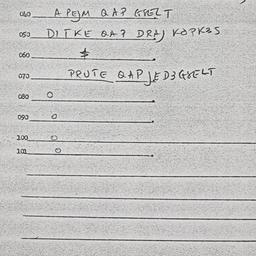 060 A PEJM QAP GSELT
050 DITKE QAP DRAJ KOPKES
060 ‡
070 PRUTE QAP JED3GSELT
080 O
090 O
100 O
101 O